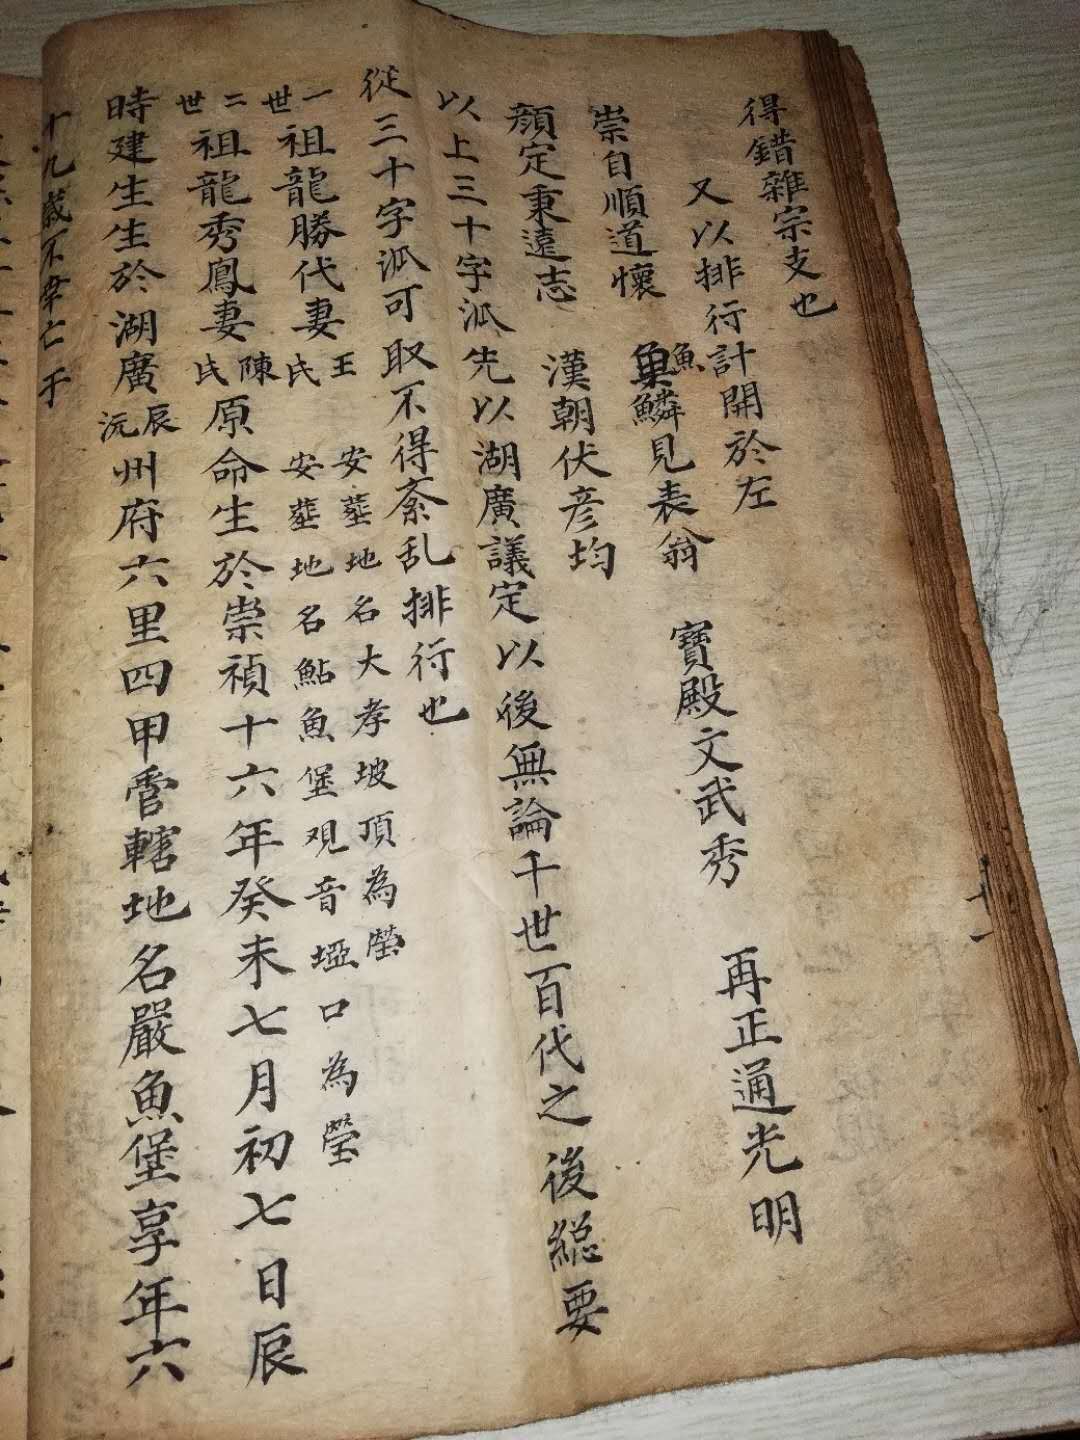 得錯雜宗支也
又以排行計開於左
崇自順道懷 魚鱗見表翁 寶殿文武秀 再正通光明
顏定秉遠志 漢朝伏彦均
以上三十字派先以湖廣議定以後無論千世百代之後総要
從三十字派可取不得紊乱排行也
一世祖龍勝代妻王氏 安塟地名大孝坡頂為塋
二世祖龍秀鳳妻陳氏 安塟地名鮎魚堡观音埡口為塋
原命生於崇禎十六年癸未七月初七日辰
時建生生於湖廣辰沅州府六里四甲管轄地名嚴魚堡享年六
十九歲不幸亡于